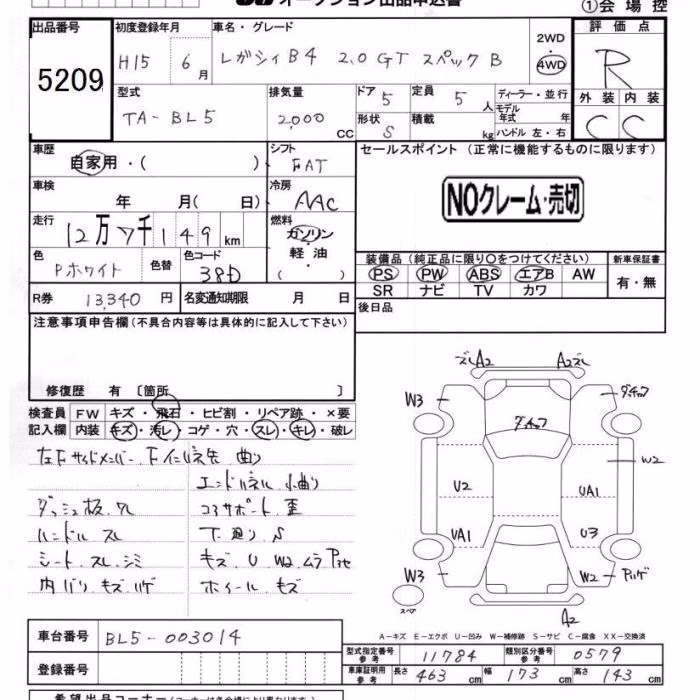 オークション出品申込書
①会場控
出品番号 初度登録年月 車名・グレード 評価点
5209 H15 6月 レガシィB4 2.0GT スペックB 2WD 4WD R
型式 排気量 ドア 定員 ディーラー・並行 外装 内装
TA-BL5 2,000 CC 5 5人 モデル年式 年 C C
形状 S 積載 kg ハンドル 左・右
車歴 シフト セールスポイント (正常に機能するものに限ります)
自家用・( ) FAT
車検 年 月( 日) 冷房 AAC NOクレーム・売切
走行 燃料
12万7千149km ガソリン・軽油・( )
色 色替 色コード 装備品(純正品に限り○をつけてください) 新車保証書
Pホワイト 38D PS PW ABS エアB AW 有・無
SR ナビ TV カワ
R券 13,340円 名変通知期限 月 日 後日品
注意事項申告欄(不具合内容等は具体的に記入して下さい)
修復歴 有 〔箇所 〕
検査員 FW キズ・飛石・ヒビ割・リペア跡・×要
記入欄 内装 キズ・汚レ・コゲ・穴・スレ・キレ・破レ
左Fサイドメンバー、Fインパネ先 曲り
エンドパネル 小曲り
コアサポート 歪
ハンドル スレ 下廻り S
シート、スレ、シミ キズ U W2 ムラ
内バリ、キズ、ハゲ ホイール キズ
ズレ A2 A2 ズレ
W3 ダッチフ
ダッチフ
W2
U2 UA1
UA1 U3
W3 W2 Pハゲ
スペア A2
A-キズ E-エクボ U-凹み W-補修跡 S-サビ C-腐食 XX-交換済
車台番号 BL5-003014
型式指定番号 参考 11784 類別区分番号 参考 0579
登録番号 車庫証明用 参考 長さ 463 cm 幅 173 cm 高さ 143 cm
希望出品コーナー